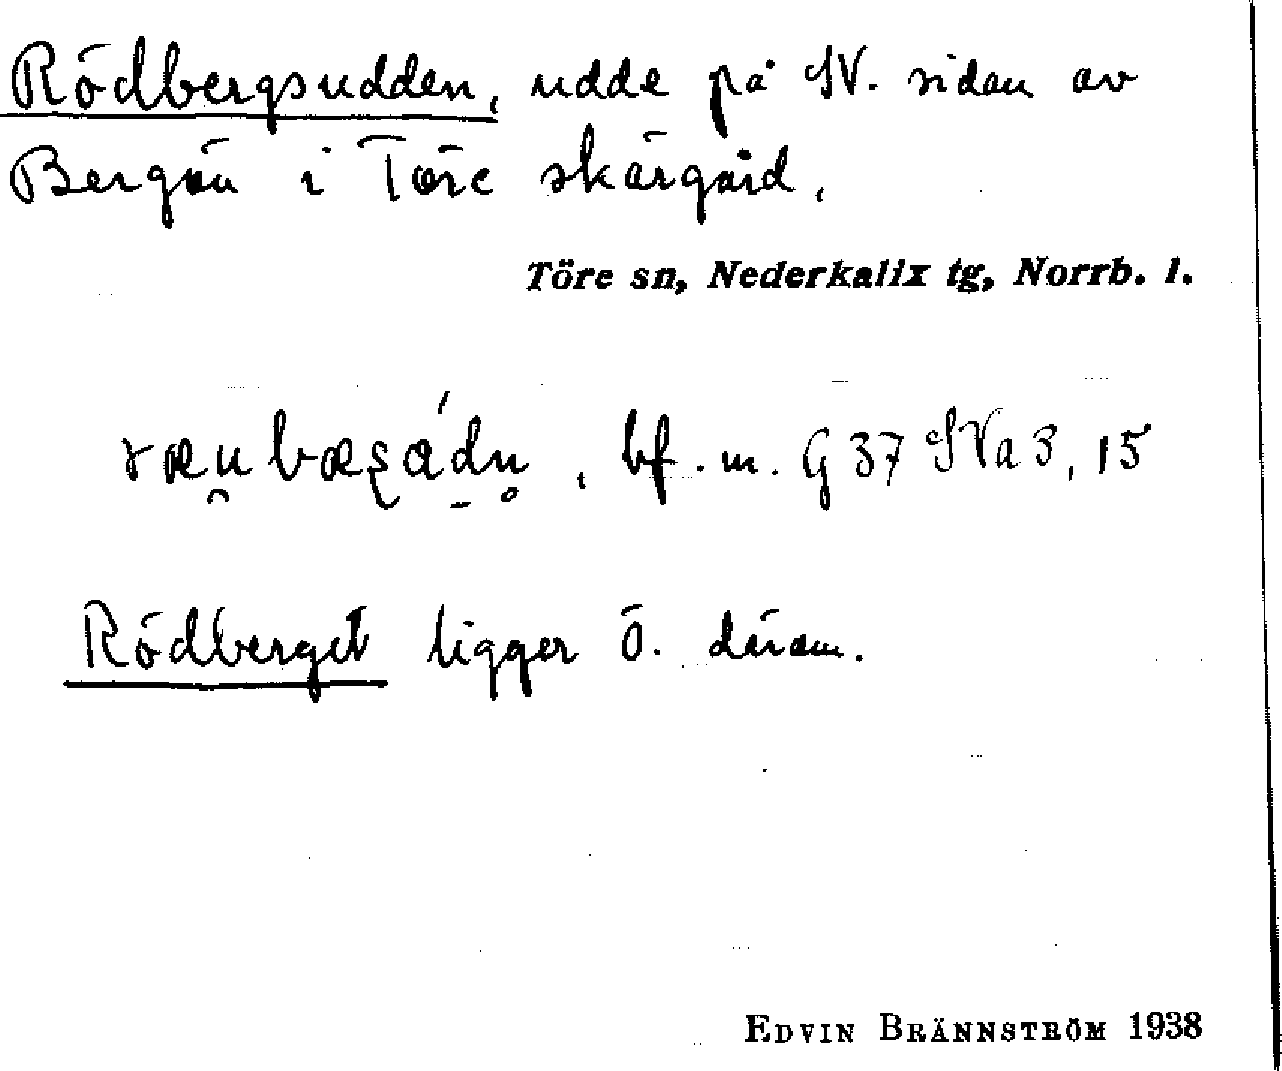 Rödbergsudden, udde på SV. sidan av
Bergön i Töre skärgård,
Töre sn, Nederkalix tg, Norrb. l.
bf. m. G 37 SVa 3, 15
Rödberget ligger Ö. därom.
EDVIN BRÄNNSTRÖM 1938